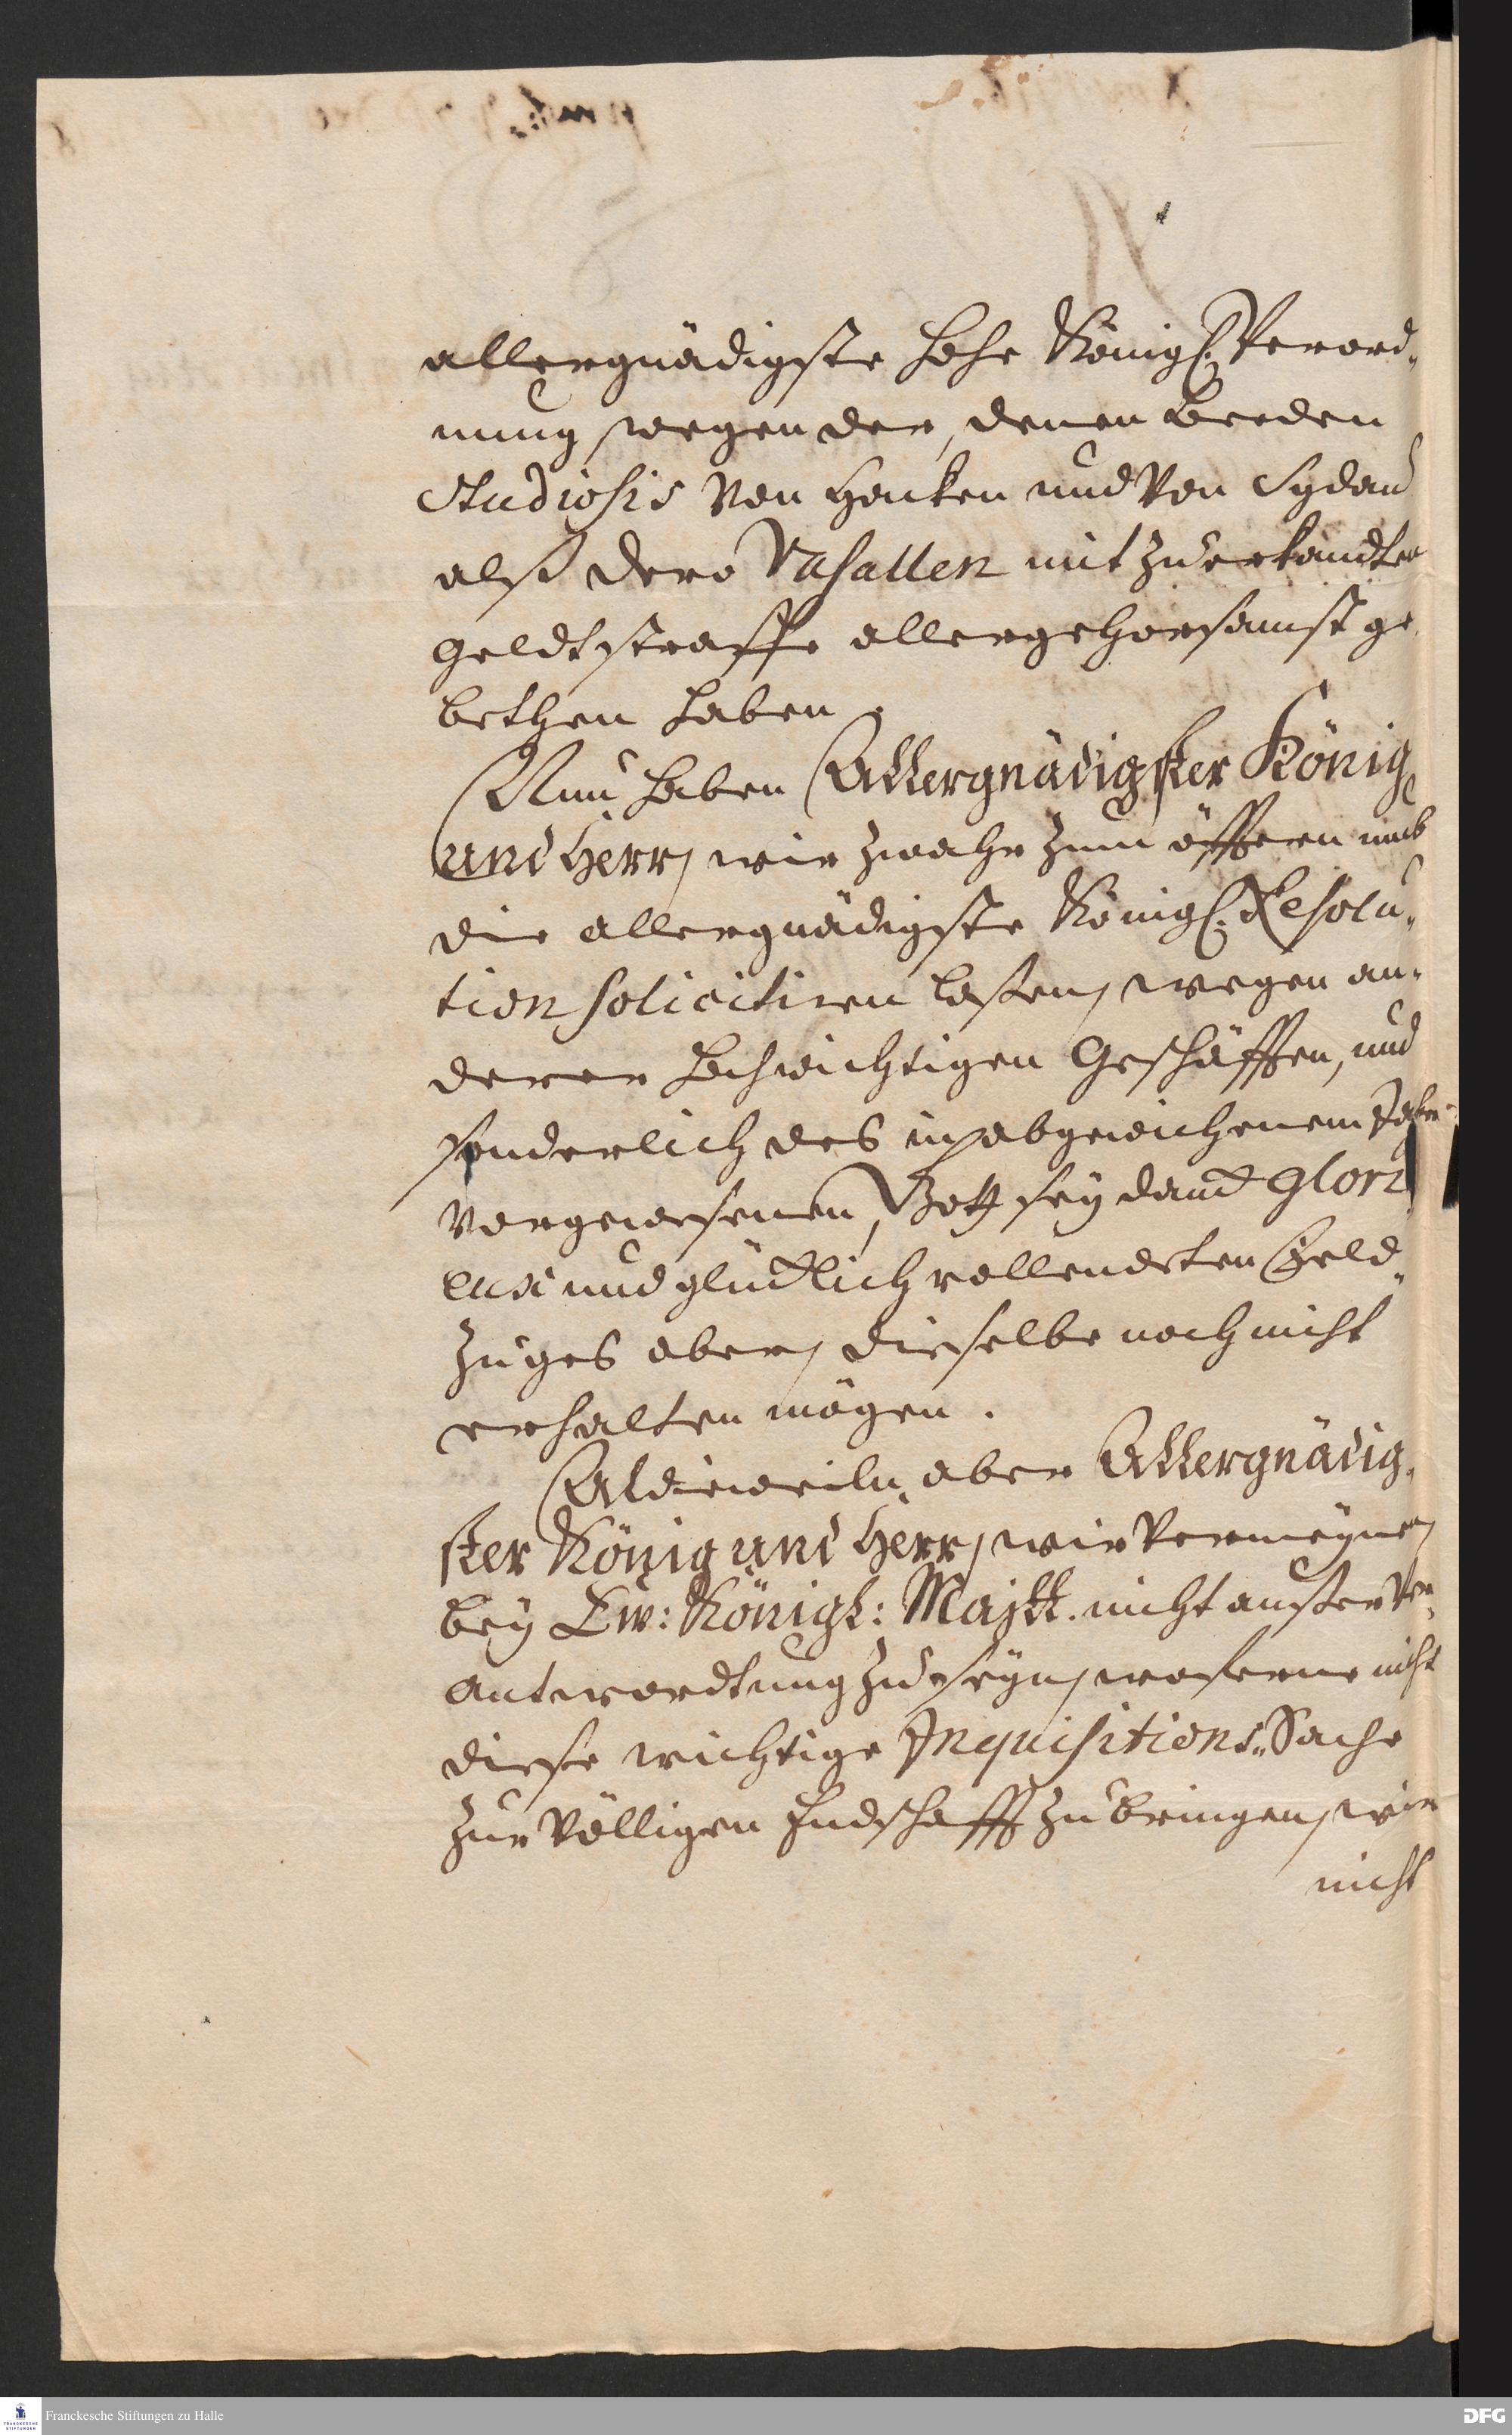 allergnädigste hohe Königl. Verord„
nung wegen der, denen beeden
Studiosis von Hacken und von Sydau
alß dero Vasallen mit zuerkandten
Geldtstraffe allergehorsambst ge„
bethen haben.
Nun haben Allergnädigster König
und Herr, wir zwahr zum öfftern umb
die allergnädigste Königl. Resolu„
tion solicitiren laßen, wegen an„
derer hochwichtigen Geschäfften, und
sonderlich des in abgewichenem Jahr
vorgewesenen, Gott sey danck glori
eux und glücklich vollendeten Feld„
zuges aber, dieselbe noch nicht
erhalten mögen.
Aldieweiln aber Allergnädig„
ster König und Herr, wir vermeynen
bey Ew: Königl: Majtt. nicht außer ver„
antwordtung zu seyn, woferne nicht
diese wichtige Inquisitions„Sache
zur völligen Endschafft zu bringen, wir
nicht
Franckesche Stiftungen zu Halle
DFG